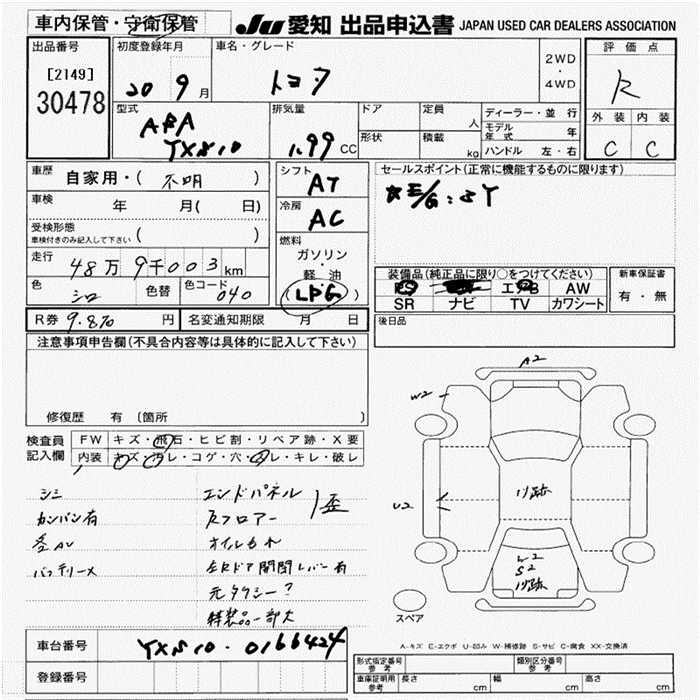 車内保管・守衛保管
JU 愛知 出品申込書 JAPAN USED CAR DEALERS ASSOCIATION
出品番号
[2149]
30478
初度登録年月
20 9 月
車名・グレード
トヨタ
2WD
・
4WD
評価点
R
外装 内装
C C
型式
ABA
YXS10
排気量
1.99 CC
ドア
形状
定員
人
積載
kg
ディーラー・並行
モデル年式 年
ハンドル 左・右
車歴
自家用・( 不明 )
車検 年 月( 日)
受検形態
車検付きのみ記入して下さい ( )
走行 48万 9千003 km
色 シロ 色替 色コード 040
R券 9.870 円 名変通知期限 月 日
シフト
AT
冷房
AC
燃料
ガソリン
・
軽油
LPG
セールスポイント(正常に機能するものに限ります)
E/G:SY
装備品(純正品に限り○をつけてください)
PS エアB AW
SR ナビ TV カワシート
新車保証書
有・無
後日品
注意事項申告欄(不具合内容等は具体的に記入して下さい)
修復歴 有 〔箇所 〕
検査員
記入欄
FW キズ・飛石・ヒビ割・リペア跡・X要
内装 キズ・汚レ・コゲ・穴・スレ・キレ・破レ
シミ
カンバン有
各AU
バッテリーメ
エンドパネル
Rフロアー
歪
オイルもれ
左Rドア開閉レバー有
元タクシー?
特装品一部欠
車台番号 YXS10-0166424
登録番号
A2
W2
U2
リ跡
W2
S2
リ跡
スペア
A-キズ E-エクボ U-凹み W-補修跡 S-サビ C-腐食 XX-交換済
形式指定番号
参考
類別区分番号
参考
車庫証明用
参考
長さ cm 幅 cm 高さ cm